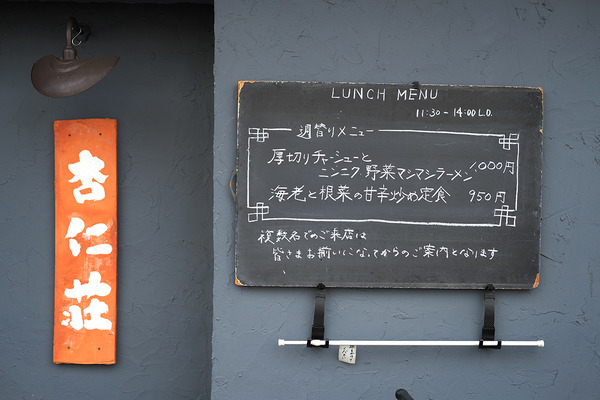 杏仁荘
LUNCH MENU
11:30 - 14:00 L.O.
週替りメニュー
厚切りチャーシューと
ニンニク野菜マシマシラーメン 1,000円
海老と根菜の甘辛炒め定食 950円
複数名でのご来店は
皆さまお揃いになってからのご案内となります